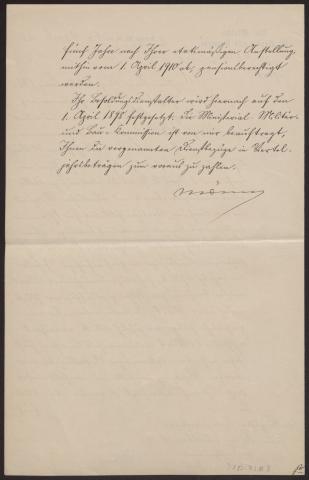 fünf Jahre nach Ihrer etatmäßigen Anstellung,
mithin vom 1. April 1910 ab, pensionsberechtigt
werden.
Ihr Besoldungsdienstalter wird hiernach auf den
1. April 1898 festgesetzt. Die Ministerial-Militär-
und Bau-Kommission ist von mir beauftragt,
Ihnen die vorgenannten Dienstbezüge in Viertel-
jahrsbeträgen zum voraus zu zahlen.